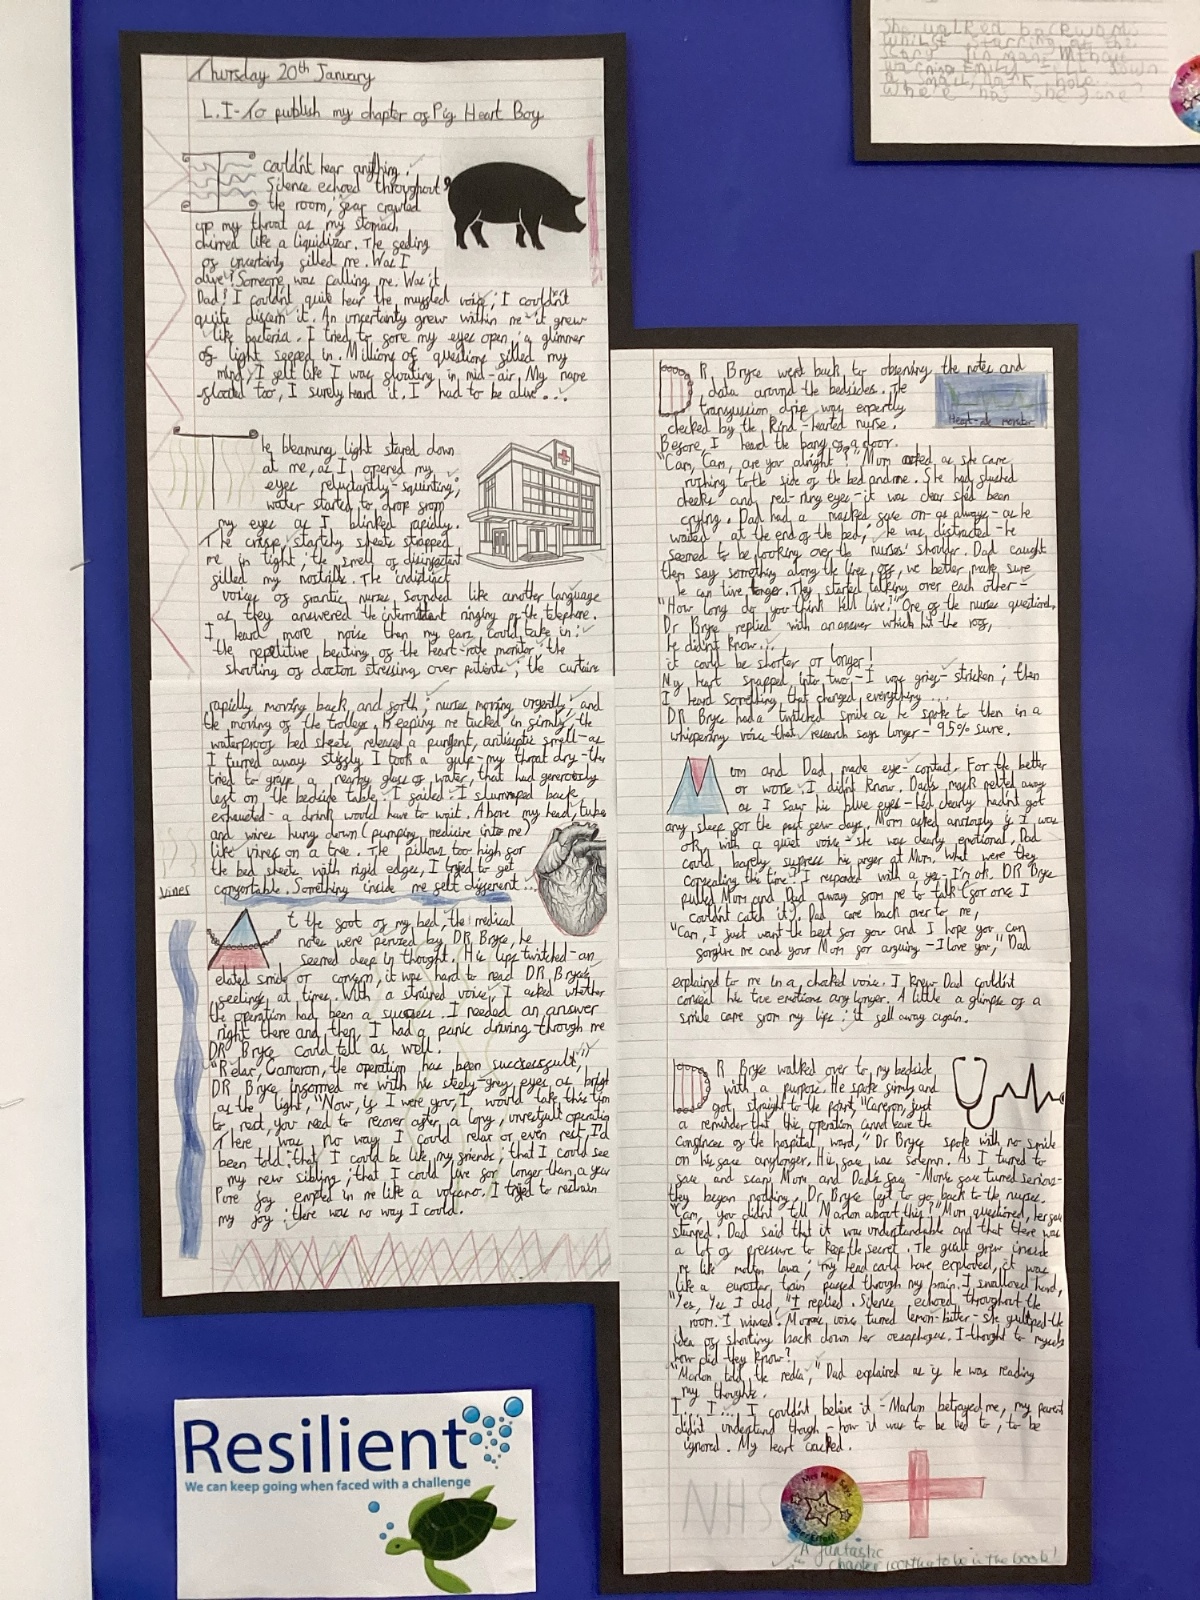 Thursday 20th January
L.I - To publish my chapter of Pig Heart Boy
I couldn't hear anything.
Silence echoed throughout
the room; fear crawled
up my throat as my stomach
churred like a liquidizar. The feeling
of uncertainty filled me. Was I
alive? Someone was calling me. Was it
Dad? I couldn't quite hear the muffled voice; I couldn't
quite discern it. An uncertanty grew within me - it grew
like bacteria. I tried to force my eyes open; a glimmer
of light seeped in. Millions of questions filled my
mind; I felt like I was floating in mid-air. My name
floated too, I surely heard it. I had to be alive...
The beaming light stared down
at me, as I opened my
eyes reluctantly - squinting;
water started to drop from
my eyes as I blinked rapidly.
The crisp, startchy sheets strapped
me in tight; the smell of disinfectant
filled my nostrils. The indistinct
voices of frantic nurses sounded like another language
as they answered the intermittent ringing of the telephone.
I heard more noise then my ears could take in:
the repetitive beating of the heart-rate monitor; the
shouting of doctors stressing over patients; the curtains
rapidly moving back and forth; nurses moving urgently; and
the moving of the trolleys. Keeping me tucked in firmly, the
waterproof bed sheets released a pungent, antiseptic smell - as
I turned away stiffly. I took a gulp - my throat dry - then
tried to grasp a nearby glass of water, that had generously
left on the bedside table. I failed. I slumped back,
exhausted - a drink would have to wait. Above my head, tubes
and wires hung down (pumping medicine into me)
like vines on a tree. The pillows too high for
the bed sheets with rigid edges, I tryed to get
comfortable. Something inside me felt different...
Vines
At the foot of my bed, the medical
notes were peruzed by DR Bryce, he
seemed deep in thought. His lips twitched - an
elated smile or concern, it was hard to read DR Bryce's
feelings at times. With a strained voice, I asked whether
the operation had been a success. I needed an answer
right there and then, I had a panic driving through me
DR Bryce could tell as well.
"Relax, Cameron, the operation has been successfull,"
DR Bryce informed me with his steely-grey eyes as bright
as the light, "Now, if I were you, I would take this time
to rest, you need to recover after a long, unrestfull operation
There was no way I could relax or even rest, I'd
been told: that I could be like my friends; that I could see
my new sibling; that I could live for longer than a year
Pure joy errupted in me like a volcano. I tryed to restrain
my joy; there was no way I could.
DR Bryce went back to observing the notes and
data around the bedsides. The
transfusion drip was expertly
checked by the kind-hearted nurse.
Before, I heard the bang of a door.
Heart-rate monitor
"Cam, Cam, are you alright?" Mom asked as she came
rushing to the side of the bed and me. She had flushed
cheeks and red-ring eyes - it was clear she'd been
crying. Dad had a masked face on - as always - as he
waited, at the end of the bed, he was distracted - he
seemed to be looking over the nurses' shoulder. Dad caught
them say something along the lines of, we better make sure
he can live longer. They started talking over each other -
"How long do you think he'll live?" One of the nurses questioned.
Dr Bryce replied with an answer which hit the roof,
he didn't know...
it could be shorter or longer!
My heart snapped into two - I was grief-stricken; then
I heard something that changed everything...
DR Bryce had a twitched smile as he spoke to them in a
whispering voice that research says longer - 95% sure.
Mom and Dad made eye-contact. For the better
or worse. I didn't know. Dad's mask melted away
as I saw his blue eyes - he'd clearly hadn't got
any sleep for the past few days. Mom asked anxiously if I was
ok, with a quiet voice - she was clearly emotional. Dad
could barely supress his anger at Mom. What were they
concealing this time? I responded with a yes - I'm ok. DR Bryce
pulled Mom and Dad away from me to talk (for once I
couldn't catch it). Dad came back over to me,
"Cam, I just want the best for you and I hope you can
forgive me and your Mom for arguing - I love you," Dad
explained to me in a choked voice. I knew Dad couldn't
conceal his true emotions any longer. A little a glimpse of a
smile came from my lips; it fell away again.
DR Bryce walked over to my bedside
with a purpose. He spoke firmly and
got straight to the point, "Cameron, just
a reminder that this operation cannot leave the
confinces of the hospital ward," Dr Bryce spoke with no smile
on his face anylonger. His face was solemn. As I turned to
face and scan Mom and Dad's face - Mom's face turned serious -
they began nodding. Dr Bryce left to go back to the nurses.
"Cam, you didn't tell Marlon about this?" Mom questioned, her face
stunned. Dad said that it was understandable and that there was
a lot of pressure to keep the secret. The guilt grew inside
me like molten lava; my head could have exploded, it was
like a eurostar train passed through my brain. I swallowed hard,
"Yes, Yes I did," I replied. Silence echoed throughout the
room. I winced. Mom's voice turned lemon-bitter - she gulped the
idea of shouting back down her oesophagus. I thought to myself
how did they know?
"Marlon told the media," Dad explained as if he was reading
my thoughts.
I... I... I couldn't believe it - Marlon betrayed me, my parents
didn't understand though - how it was to be lied to; to be
ignored. My heart cracked.
NHS
Mrs May Says
A funtastic
chapter worthy to be in the book!
Resilient
We can keep going when faced with a challenge
She walked backwards